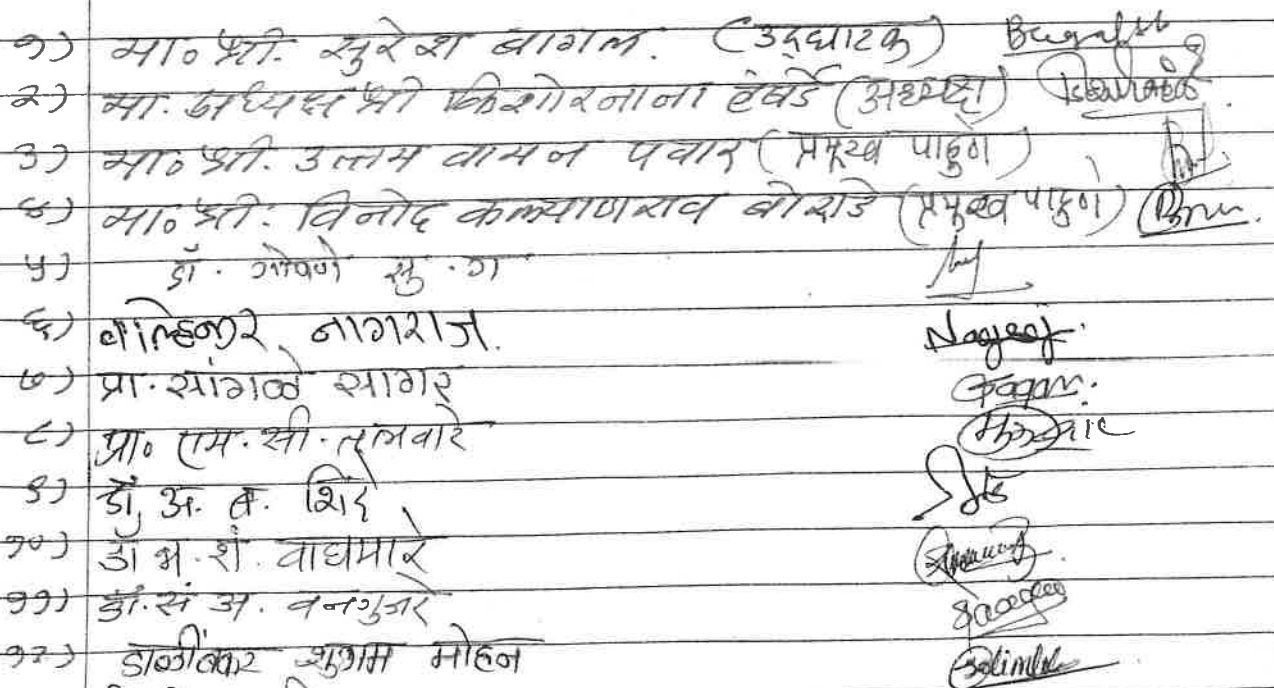 १) मा० श्री. सुरेश बागल. (उद्घाटक)
२) मा. अध्यक्ष श्री किशोरनाना हंबर्डे (अध्यक्ष)
३) मा० श्री. उत्तम वामन पवार (प्रमूख पाहुणे)
४) मा० श्री. विनोद कल्याणराव बोराडे (प्रमुख पाहुणे)
५) डॉ. गोपणे सु. ग
६) वाल्हेकर नागराज.
७) प्रा. सांगळे सागर
८) प्रा० एम. सी. तलवारे
९) डॉ. अ. ब. शिंदे
१०) डॉ भ. शं. वाघमारे
११) डॉ. सं अ. वनगुजरे
१२) डाळींबकर शुभम मोहन